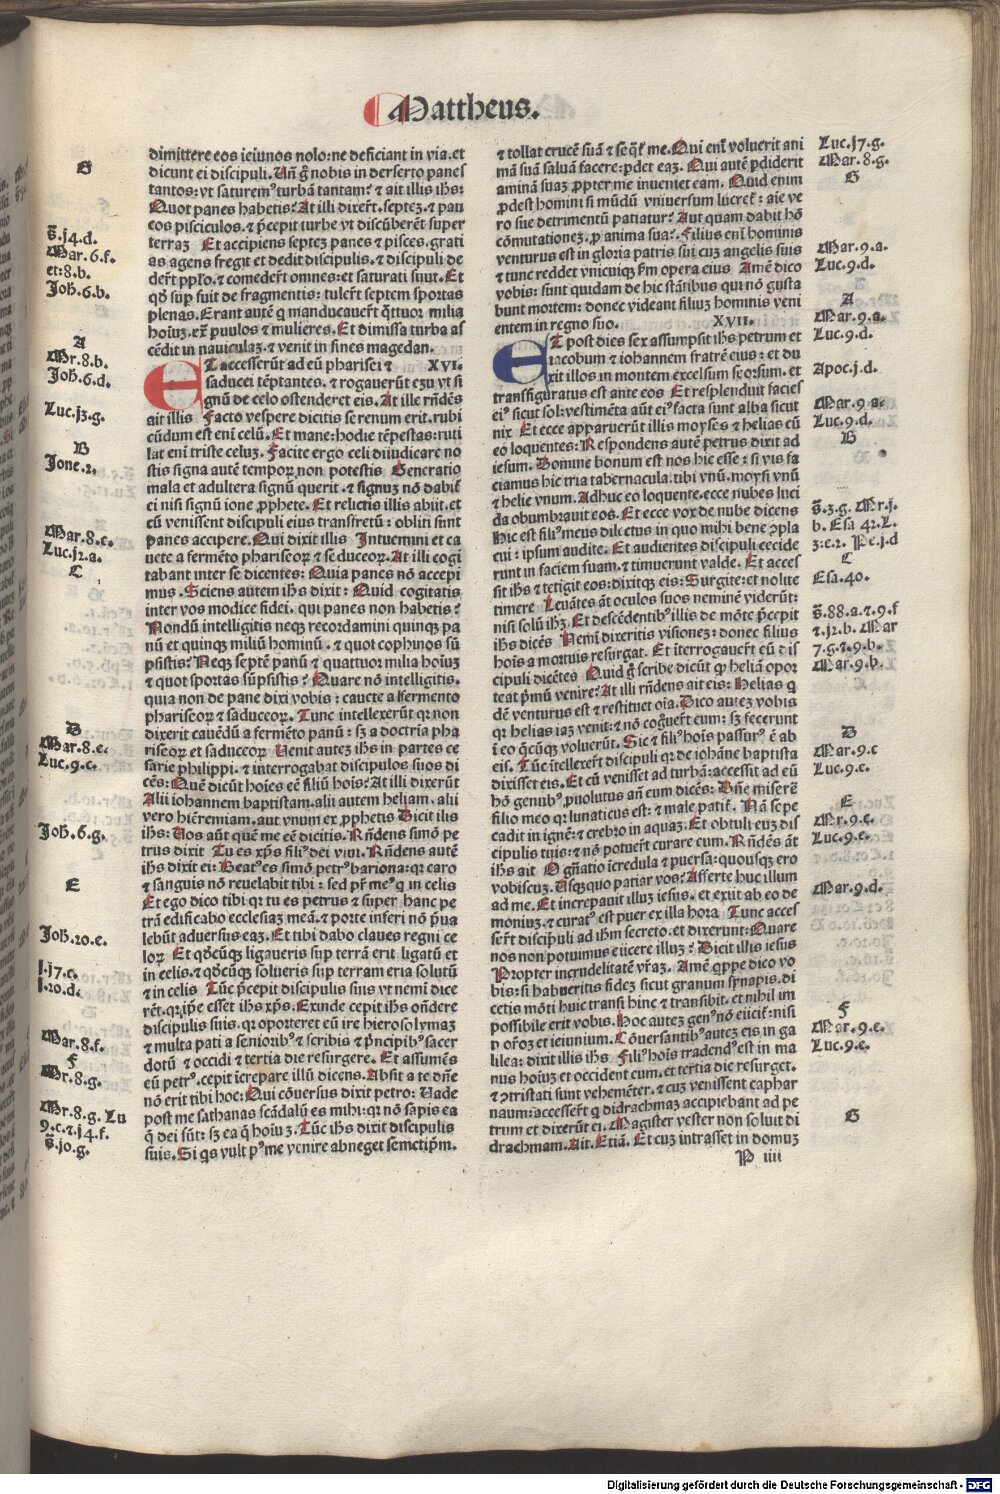 Mattheus.
dimittere eos ieiunos nolo: ne deficiant in via. et
dicunt ei discipuli. Uñ g̃ nobis in derserto panes
tantos: vt saturemꝰ turbã tantam? ⁊ ait illis ihs:
Quot panes habetis? At illi dixer̃t. septeꝫ. ⁊ pau
cos pisciculos. ⁊ p̃cepit turbe vt discũberẽt super
terraꝫ Et accipiens septeꝫ panes ⁊ pisces. grati
as agens fregit et dedit discipulis. ⁊ discipuli de
der̃t pplo. ⁊ comeder̃t omnes: et saturati suut. Et
qď suꝑ fuit de fragmentis: tuler̃t septem sportas
plenas. Erant autẽ q̃ manducauer̃t q̃ttuor milia
hoiuꝫ. ex̃ puulos ⁊ mulieres. Et dimissa turba as
cẽdit in nauiculaꝫ. ⁊ venit in fines magedan.
XVI.
ET accesserũt ad eũ pharisei ⁊
saducei tẽptantes. ⁊ rogauerũt eꝫu vt si
gnũ de celo ostenderet eis. At ille rñdẽs
ait illis Facto vespere dicitis serenum erit. rubi
cũdum est eni celũ. Et mane: hodie tẽpestas: ruti
lat eni triste celuꝫ. Facite ergo celi diiudicare no
stis signa autẽ temporꝝ non potestis Generatio
mala et adultera signũ querit. ⁊ signuꝫ nõ dabit̃
ei nisi signũ ione ꝓphete. Et relictis illis abiit. et
cũ venissent discipuli eius transfretũ: obliti sunt
panes accipere. Qui dixit illis Intuemini et ca
uete a fermẽto phariseoꝝ ⁊ seduceoꝝ. At illi cogi
tabant inter se dicentes: Quia panes nõ accepi
mus. Sciens autem ihs dixit: Quid cogitatis
inter vos modice fidei. qui panes non habetis?
Nondũ intelligitis neqꝫ recordamini quinqꝫ pa
nũ et quinqꝫ miliũ hominũ. ⁊ quot cophinos sũ
psistis? Neqꝫ septẽ panũ ⁊ quattuor milia hoiuꝫ
⁊ quot sportas sũpsistis? Quare nõ intelligitis.
quia non de pane dixi vobis: cauete a fermento
phariseoꝝ ⁊ saduceoꝝ. Tunc intellexerũt qꝛ non
dixerit cauẽdũ a fermẽto panũ: sꝫ a doctria pha
riseoꝝ et saduceoꝝ Uenit auteꝫ ihs in partes ce
sarie philippi. ⁊ interrogabat discipulos suos di
cẽs: Quẽ dicũt hoies eẽ filiũ hois? At illi dixerũt
Alii iohannem baptistam. alii autem heliam. alii
vero hiẽremiam. aut vnum ex ꝓphetis Dicit illis
ihs: Uos aũt quẽ me eẽ dicitis. Rñdens simõ pe
trus dixit Tu es xp̃s filiꝰ dei viui. Rñdens autẽ
ihs dixit ei: Beatꝰ es simõ petrꝰ bariona: qꝛ caro
⁊ sanguis nõ reuelabit tibi: sed pr̃ meꝰ q̃ in celis
Et ego dico tibi qꝛ tu es petrus ⁊ super hanc pe
trã edificabo ecclesiaꝫ meã. ⁊ porte inferi nõ p̃ua
lebũt aduersus eaꝫ. Et tibi dabo claues regni ce
loꝝ Et qďcũqꝫ ligaueris sup terrã erit ligatũ et
in celis. ⁊ qďcũqꝫ solueris sup terram eria solutũ
⁊ in celis Tũc p̃cepit discipulis suis vt nemi dice
rẽt. qꝛ ip̃e esset ihs xp̃s. Exinde cepit ihs oñdere
discipulis suis. qꝛ oporteret eũ ire hierosolymaꝫ
⁊ multa pati a senioribꝰ ⁊ scribis ⁊ p̃ncipibꝰ sacer
dotũ ⁊ occidi ⁊ tertia die resurgere. Et assumẽs
eũ petrꝰ. cepit icrepare illũ dicens. Absit a te dñe
nõ erit tibi hoc: Qui cõuersus dixit petro: Uade
post me sathanas scãdalũ es mihi: qꝛ nõ sapis ea
q̃ dei sũt: sꝫ ea q̃ hoiuꝫ. Tũc ihs dixit discipulis
suis. Si qs vult pꝰ me venire abneget semetipm.
⁊ tollat crucẽ suã ⁊ seqr̃ me. Qui eni voluerit ani
mã suã saluam facere: ꝑdet eaꝫ. Qui autẽ ꝑdiderit
aminã suaꝫ ꝓpter me inueniet eam. Quid enim
ꝓdest homini si mũdũ vniuersum lucret̃: aie ve
ro sue detrimentũ patiatur? Aut quam dabit hõ
cõmutationeꝫ. ꝓ anima sua? Filius eni hominis
venturus est in gloria patris sui cuꝫ angelis suis
⁊ tunc reddet vnicuiqꝫ fm opera eius Amẽ dico
vobis: sunt quidam de hic stãtibus qui nõ gusta
bunt mortem: donec videant filiuꝫ hominis veni
entem in regno suo. XVII.
ET post dies sex assumpsit ihs petrum et
iacobum ⁊ iohannem fratrẽ eius: et du
xit illos in montem excelsum seorsum. et
transfiguratus est ante eos Et resplenduit facies
eiꝰ sicut sol: vestimẽta aũt eiꝰ facta sunt alba sicut
nix Et ecce apparuerũt illis moyses ⁊ helias cũ
eo loquentes: Respondens autẽ petrus dixit ad
iesum. Domine bonum est nos hic esse: si vis fa
ciamus hic tria tabernacula. tibi vnũ. moysi vnũ
⁊ helie vnum. Adhuc eo loquente. ecce nubes luci
da obumbrauit eos. Et ecce vox de nube dicens
Hic est filiꝰ meus dilectus in quo mihi bene ꝯpla
cui: ipsum audite. Et audientes discipuli cecide
runt in faciem suam. ⁊ timuerunt valde. Et acces
sit ihs ⁊ tetigit eos: dixitqꝫ eis: Surgite: et nolite
timere Leuãtes aũt oculos suos neminẽ viderũt:
nisi solũ ihꝫ. Et descẽdentibꝰ illis de mõte p̃cepit
ihs dicẽs Nemi dixeritis visioneꝫ: donec filius
hois a mortuis resurgat. Et iterrogauer̃t eũ dis
cipuli dicẽtes Quid g̃ scribe dicũt qꝛ heliã opor
teat p̃mũ venire? At illi rñdens ait eis: Helias q̃
dẽ venturus est ⁊ restituet oia. Dico auteꝫ vobis
qꝛ helias iaꝫ venit: ⁊ nõ cog̃uer̃t eum: sꝫ fecerunt
ĩ eo q̃cũqꝫ voluerũt. Sic ⁊ filiꝰ hois passurꝰ ẽ ab
eis. Tũc itellexer̃t discipuli qꝛ de iohãne baptista
dixisset eis. Et cũ venisset ad turbã: accessit ad eũ
hõ genubꝰ ꝓuolutus añ eum dicẽs: Dñe miserẽ
filio meo qꝛ lunaticus est: ⁊ male patit̃. Nã sepe
cadit in ignẽ: ⁊ crebro in aquaꝫ. Et obtuli euꝫ dis
cipulis tuis: ⁊ nõ potuer̃t curare cum. Rñdẽs ãt
ihs ait O gñatio icredula ⁊ ꝑuersa: quousqꝫ ero
vobiscuꝫ. Usqꝫquo patiar vos? Afferte huc illum
ad me. Et increpauit illuꝫ iesus. et exiit ab eo de
moniuꝫ. ⁊ curatꝰ est puer ex illa hora Tunc acces
ser̃t discipuli ad ihm secreto. et dixerunt: Quare
nos non potuimus eiicere illuꝫ? Dicit illis iesus
Propter incrudelitatẽ vr̃aꝫ. Amẽ qppe dico vo
bis: si habueritis fideꝫ sicut granum synapis. di
cetis mõti huic transi hinc ⁊ transibit. et nihil im
possibile erit vobis. Hoc auteꝫ genꝰ nõ eiicit̃: nisi
ꝑ or̃oꝫ et ieiunium. Cõuersantibꝰ auteꝫ eis in ga
lilea: dixit illis ihs Filiꝰ hois tradendꝰ est in ma
nus hoiuꝫ et occident cum. et tertia die resurget.
⁊ ꝯtristati sunt vehemẽter. ⁊ cuꝫ venissent caphar
naum: accesser̃t q̃ didrachmaꝫ accipiebant ad pe
trum et dixerũt ei. Magister vester non soluit di
drachmam. Ait. Etiã. Et cuꝫ intrasset in domuꝫ
P iiii
G
g̃.j4.d.
Mar.6.f.
et:8.b.
Joh.6.b.
A
Mr.8.b.
Joh.6.d.
Luc.j3.g.
B
Jone.2.
Mar.8.e.
Luc.j2.a.
C
D
Mar.8.e.
Luc.9.c.
Joh.6.g.
E
Joh.20.e.
j.j7.c.
j.20.d.
Mar.8.f.
F
Mr.8.g.
Mr.8.g. Lu
9.c.⁊.j4.f.
g̃.jo.g.
Luc.j7.g.
Mar.8.g.
G
Mar.9.a.
Luc.9.d.
A
Mar.9.a.
Luc.9.d.
Apoc.j.d.
Mar.9 a.
Luc.9.d.
B
g̃.3.g. Mr.j.
b. Esa 42.L.
3:e.2. Pe.j.d
C
Esa.40.
g̃.88.a.⁊.9.f
⁊.j2.b. Mar
7.g.⁊.9.b.
Mar.9.b.
D
Mar.9.c
Luc.9.e.
E
Mr.9.c.
Luc.9.e.
Mar.9.d.
F
Mar.9.e.
Luc.9.e.
G
Digitalisierung gefördert durch die Deutsche Forschungsgemeinschaft - DFG